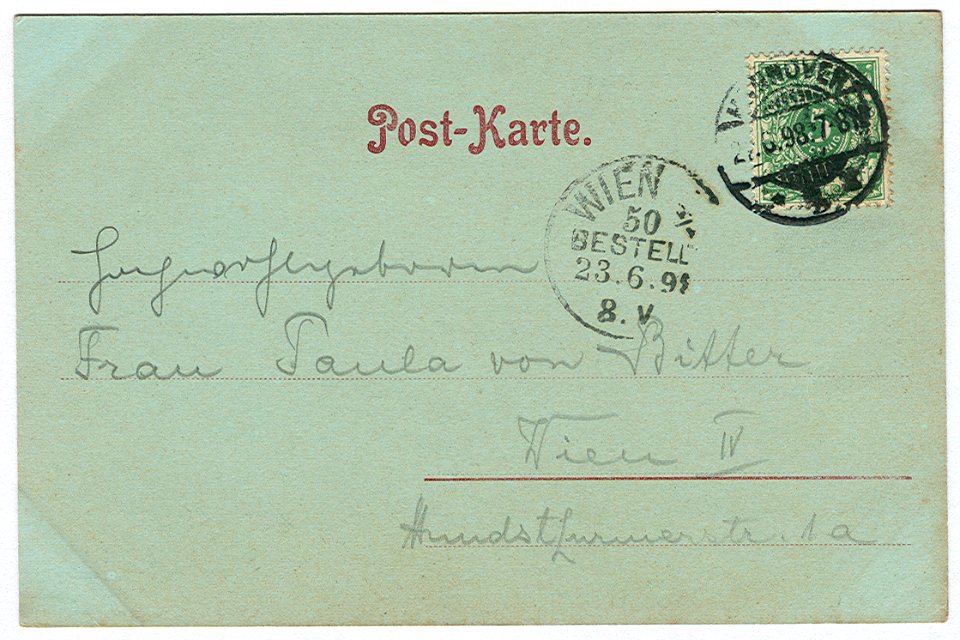 Post-Karte.
HANNOVER
98. 7-8
WIEN
50
BESTELLT
23.6.98
8. V
Hochwohlgeboren
Frau Paula von Bitter
Wien IV
Hundsthurmerstr. 1a